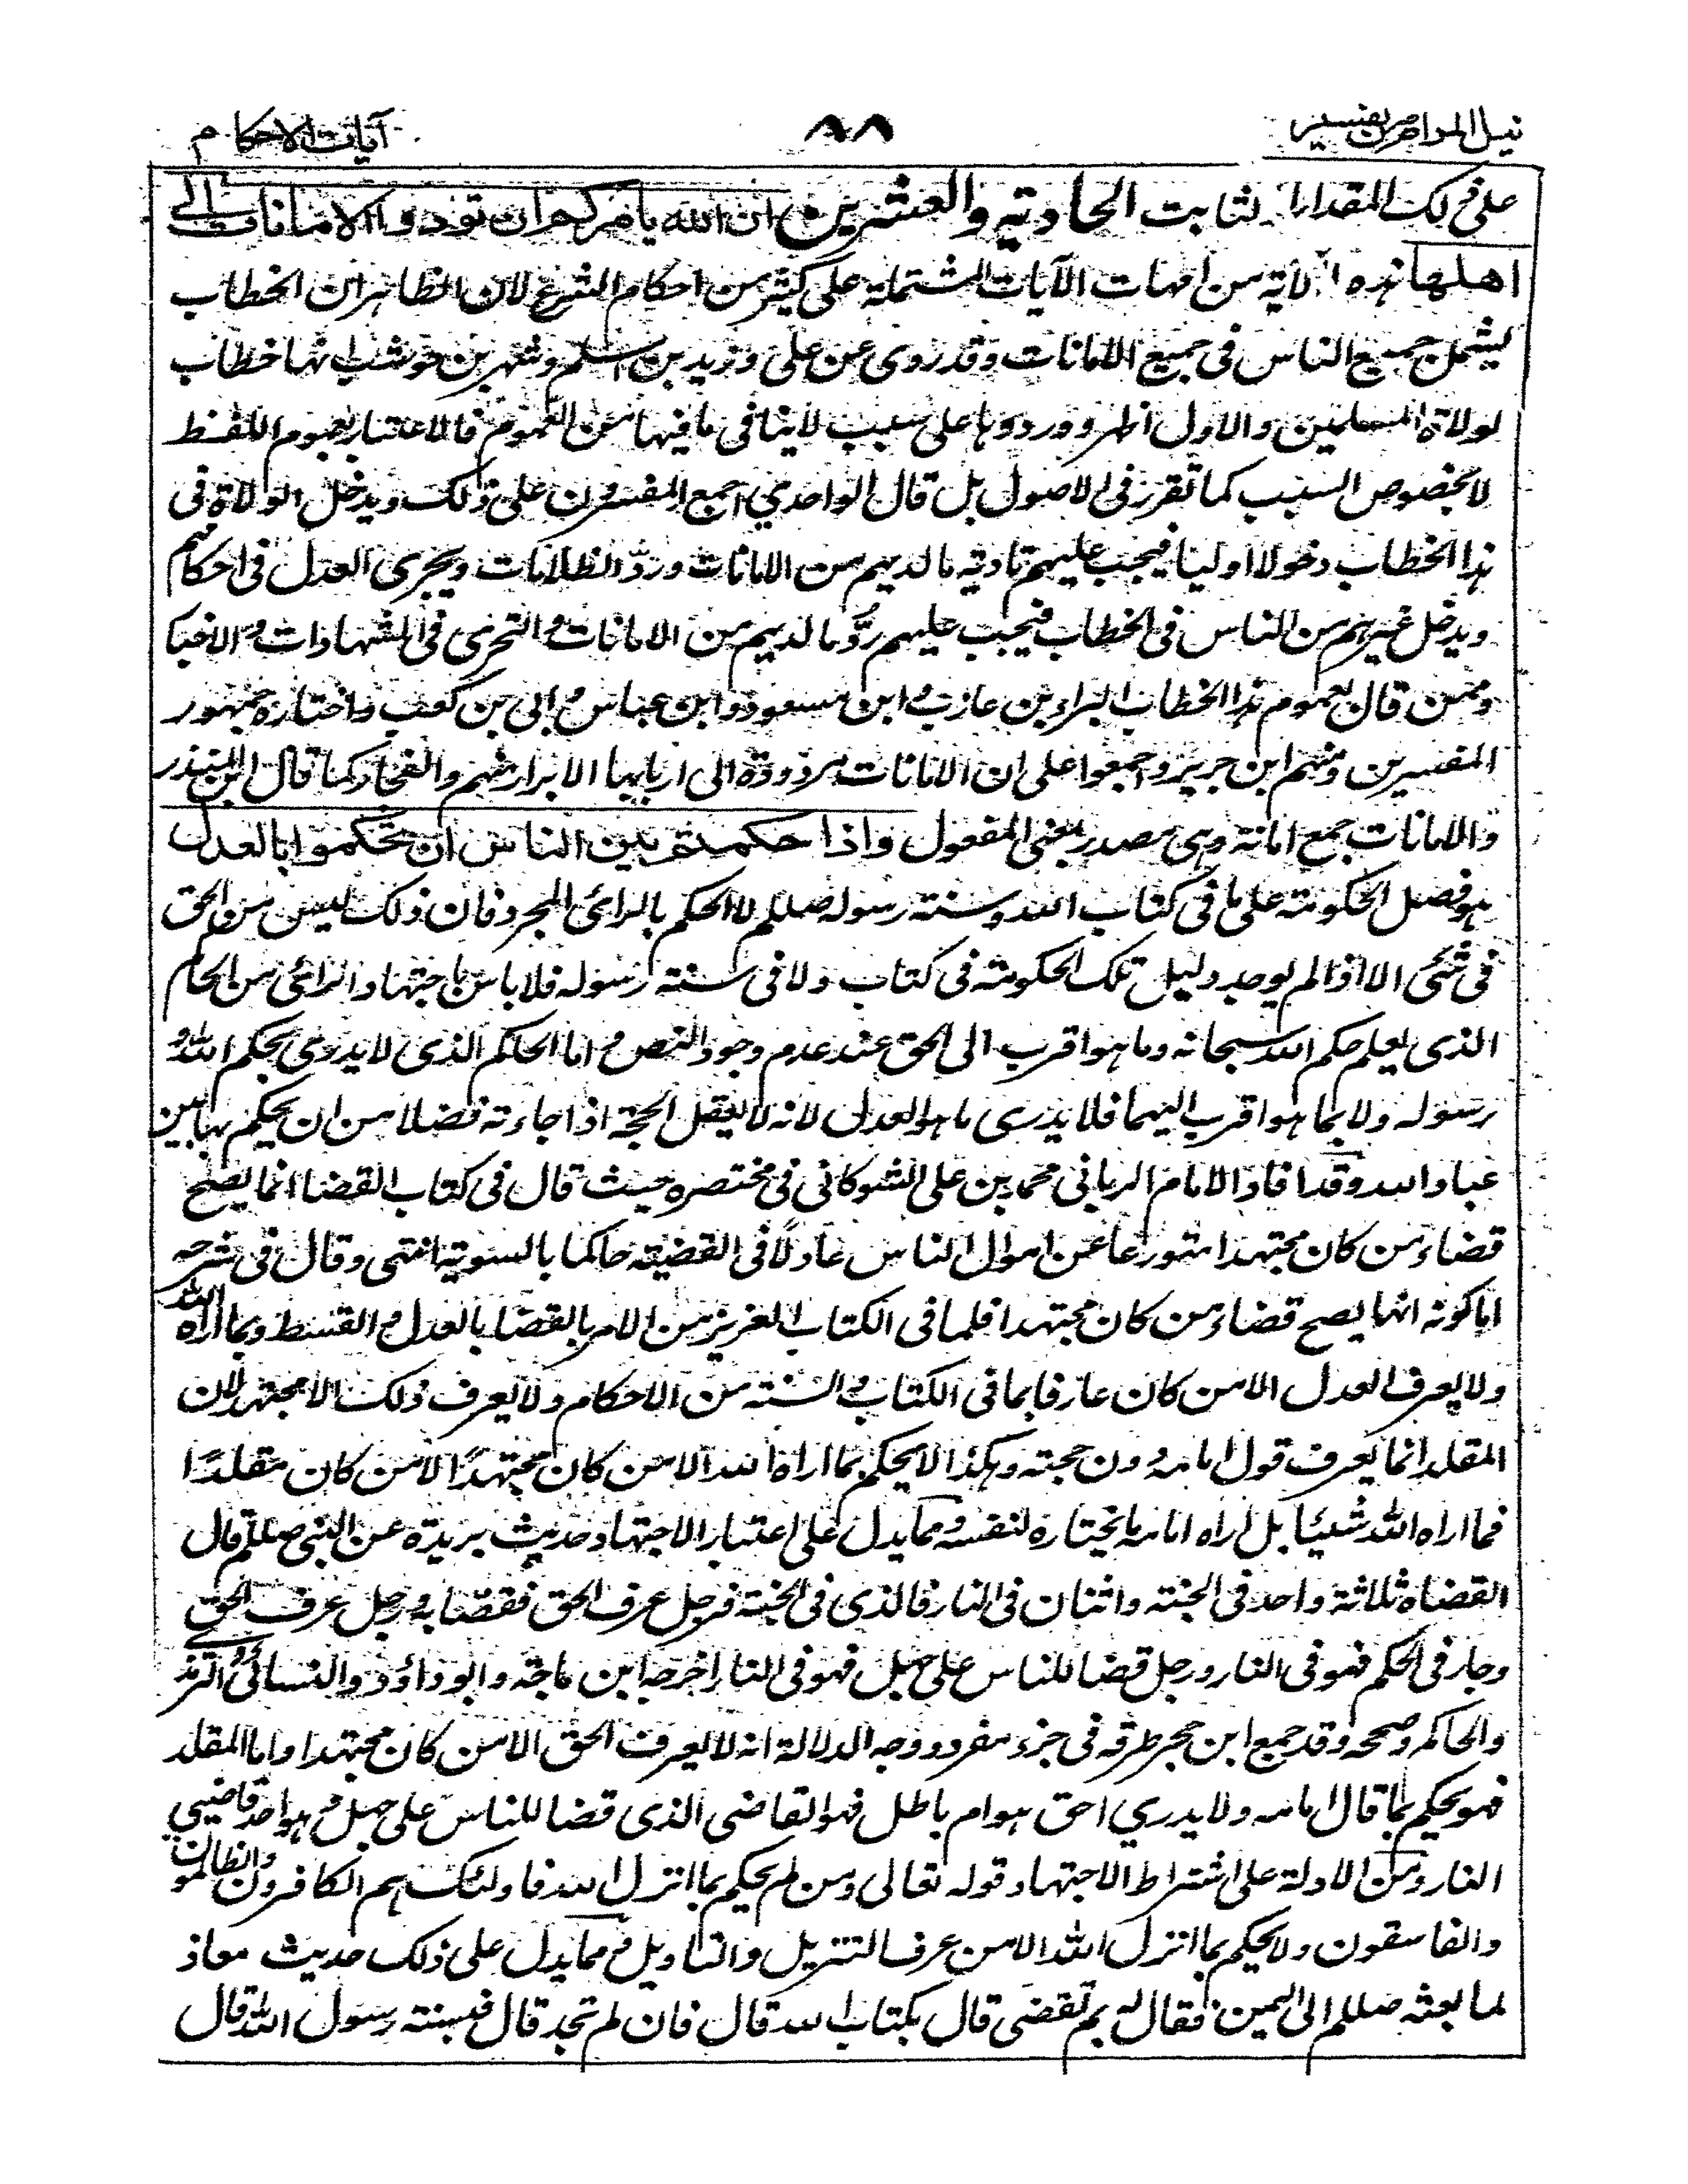 نيل المرام من تفسير ٨٨ آيات الاحكام
على ذلك المقدار الثابت الحادية والعشرين ان الله يامركم ان تودوا الامانات الى
اهلها هذه الآية من امهات الآيات المشتملة على كثير من احكام الشرع لان الظاهر ان الخطاب
يشمل جميع الناس فى جميع الامانات وقد روى عن على وزيد بن اسلم وشهر بن حوشب انها خطاب
لولاة المسلمين والاول اظهر وورودها على سبب لاينافى ما فيها من العموم فالاعتبار بعموم اللفظ
لا بخصوص السبب كما تقرر فى الاصول بل قال الواحدي اجمع المفسرون على ذلك ويدخل الولاة فى
هذا الخطاب دخولا اوليا فيجب عليهم تادية ما لديهم من الامانات وردّ الظلامات ويجرى العدل فى احكامهم
ويدخل غيرهم من الناس فى الخطاب فيجب عليهم ردّ ما لديهم من الامانات و التحرى فى الشهادات و الاخبا
وممن قال بعموم هذا الخطاب البراء بن عازب و ابن مسعود وابن عباس و ابى بن كعب واختاره جمهور
المفسرين ومنهم ابن جرير واجمعوا على ان الامانات مردودة الى اربابها الابرار منهم والفجار كما قال ابن المنذر
والامانات جمع امانة وهى مصدر بمعنى المفعول واذا حكمتم بين الناس ان تحكموا بالعدل
هو فصل الحكومة على ما فى كتاب الله وسنة رسوله صللم لا الحكم بالرائى المجرد فان ذلك ليس من الحق
فى شئى الا اذا لم يوجد دليل تلك الحكومة فى كتاب ولا فى سنة رسوله فلا باس باجتهاد الرائى من الحاكم
الذى يعلم حكم الله سبحانه وما هو اقرب الى الحق عند عدم وجود النص و اما الحاكم الذى لا يدرى بحكم الله و
رسوله ولا بما هو اقرب اليهما فلا يدرى ما هو العدل لانه لا يعقل الحجة اذا جاءته فضلا من ان يحكم بها بين
عباد الله وقد افاد الامام الربانى محمد بن على الشوكانى فى مختصره حيث قال فى كتاب القضا انما يصح
قضاء من كان مجتهدا متورعا عن اموال الناس عادلًا فى القضية حاكما بالسوية انتهى وقال فى شرحه
اما كونه انما يصح قضاء من كان مجتهدا فلما فى الكتاب العزيز من الامر بالقضا بالعدل و القسط وبما اراه الله
ولا يعرف العدل الا من كان عارفا بما فى الكتاب و السنة من الاحكام ولا يعرف ذلك الا مجتهد لان
المقلد انما يعرف قول امامه دون حجته وهكذا لا يحكم بما اراه الله الا من كان مجتهدًا لا من كان مقلدًا
فما اراه الله شيئا بل اراه امامه ما يختاره لنفسه ومما يدل على اعتبار الاجتهاد حديث بريدة عن النبى صللم قال
القضاة ثلاثة واحد فى الجنة واثنان فى النار فالذى فى الجنة فرجل عرف الحق فقضا به ورجل عرف الحق
وجار فى الحكم فهو فى النار ورجل قضا للناس على جهل فهو فى النار اخرجه ابن ماجة وابوداؤد والنسائى و الترمذي
والحاكم وصححه وقد جمع ابن حجر طرقه فى جزء مفرد ووجه الدلالة انه لا يعرف الحق الا من كان مجتهدا واما المقلد
فهو يحكم بما قال امامه ولا يدري احق هو ام باطل فهو القاضى الذى قضا للناس على جهل و هو احد قاضيى
النار ومن الادلة على اشتراط الاجتهاد قوله تعالى ومن لم يحكم بما انزل الله فاولئك هم الكافرون والظالمون
والفاسقون ولا يحكم بما انزل الله الا من عرف التنزيل والتاويل و مما يدل على ذلك حديث معاذ
لما بعثه صللم الى اليمن فقال له بم تقضى قال بكتاب الله قال فان لم تجد قال فبسنة رسول الله قال